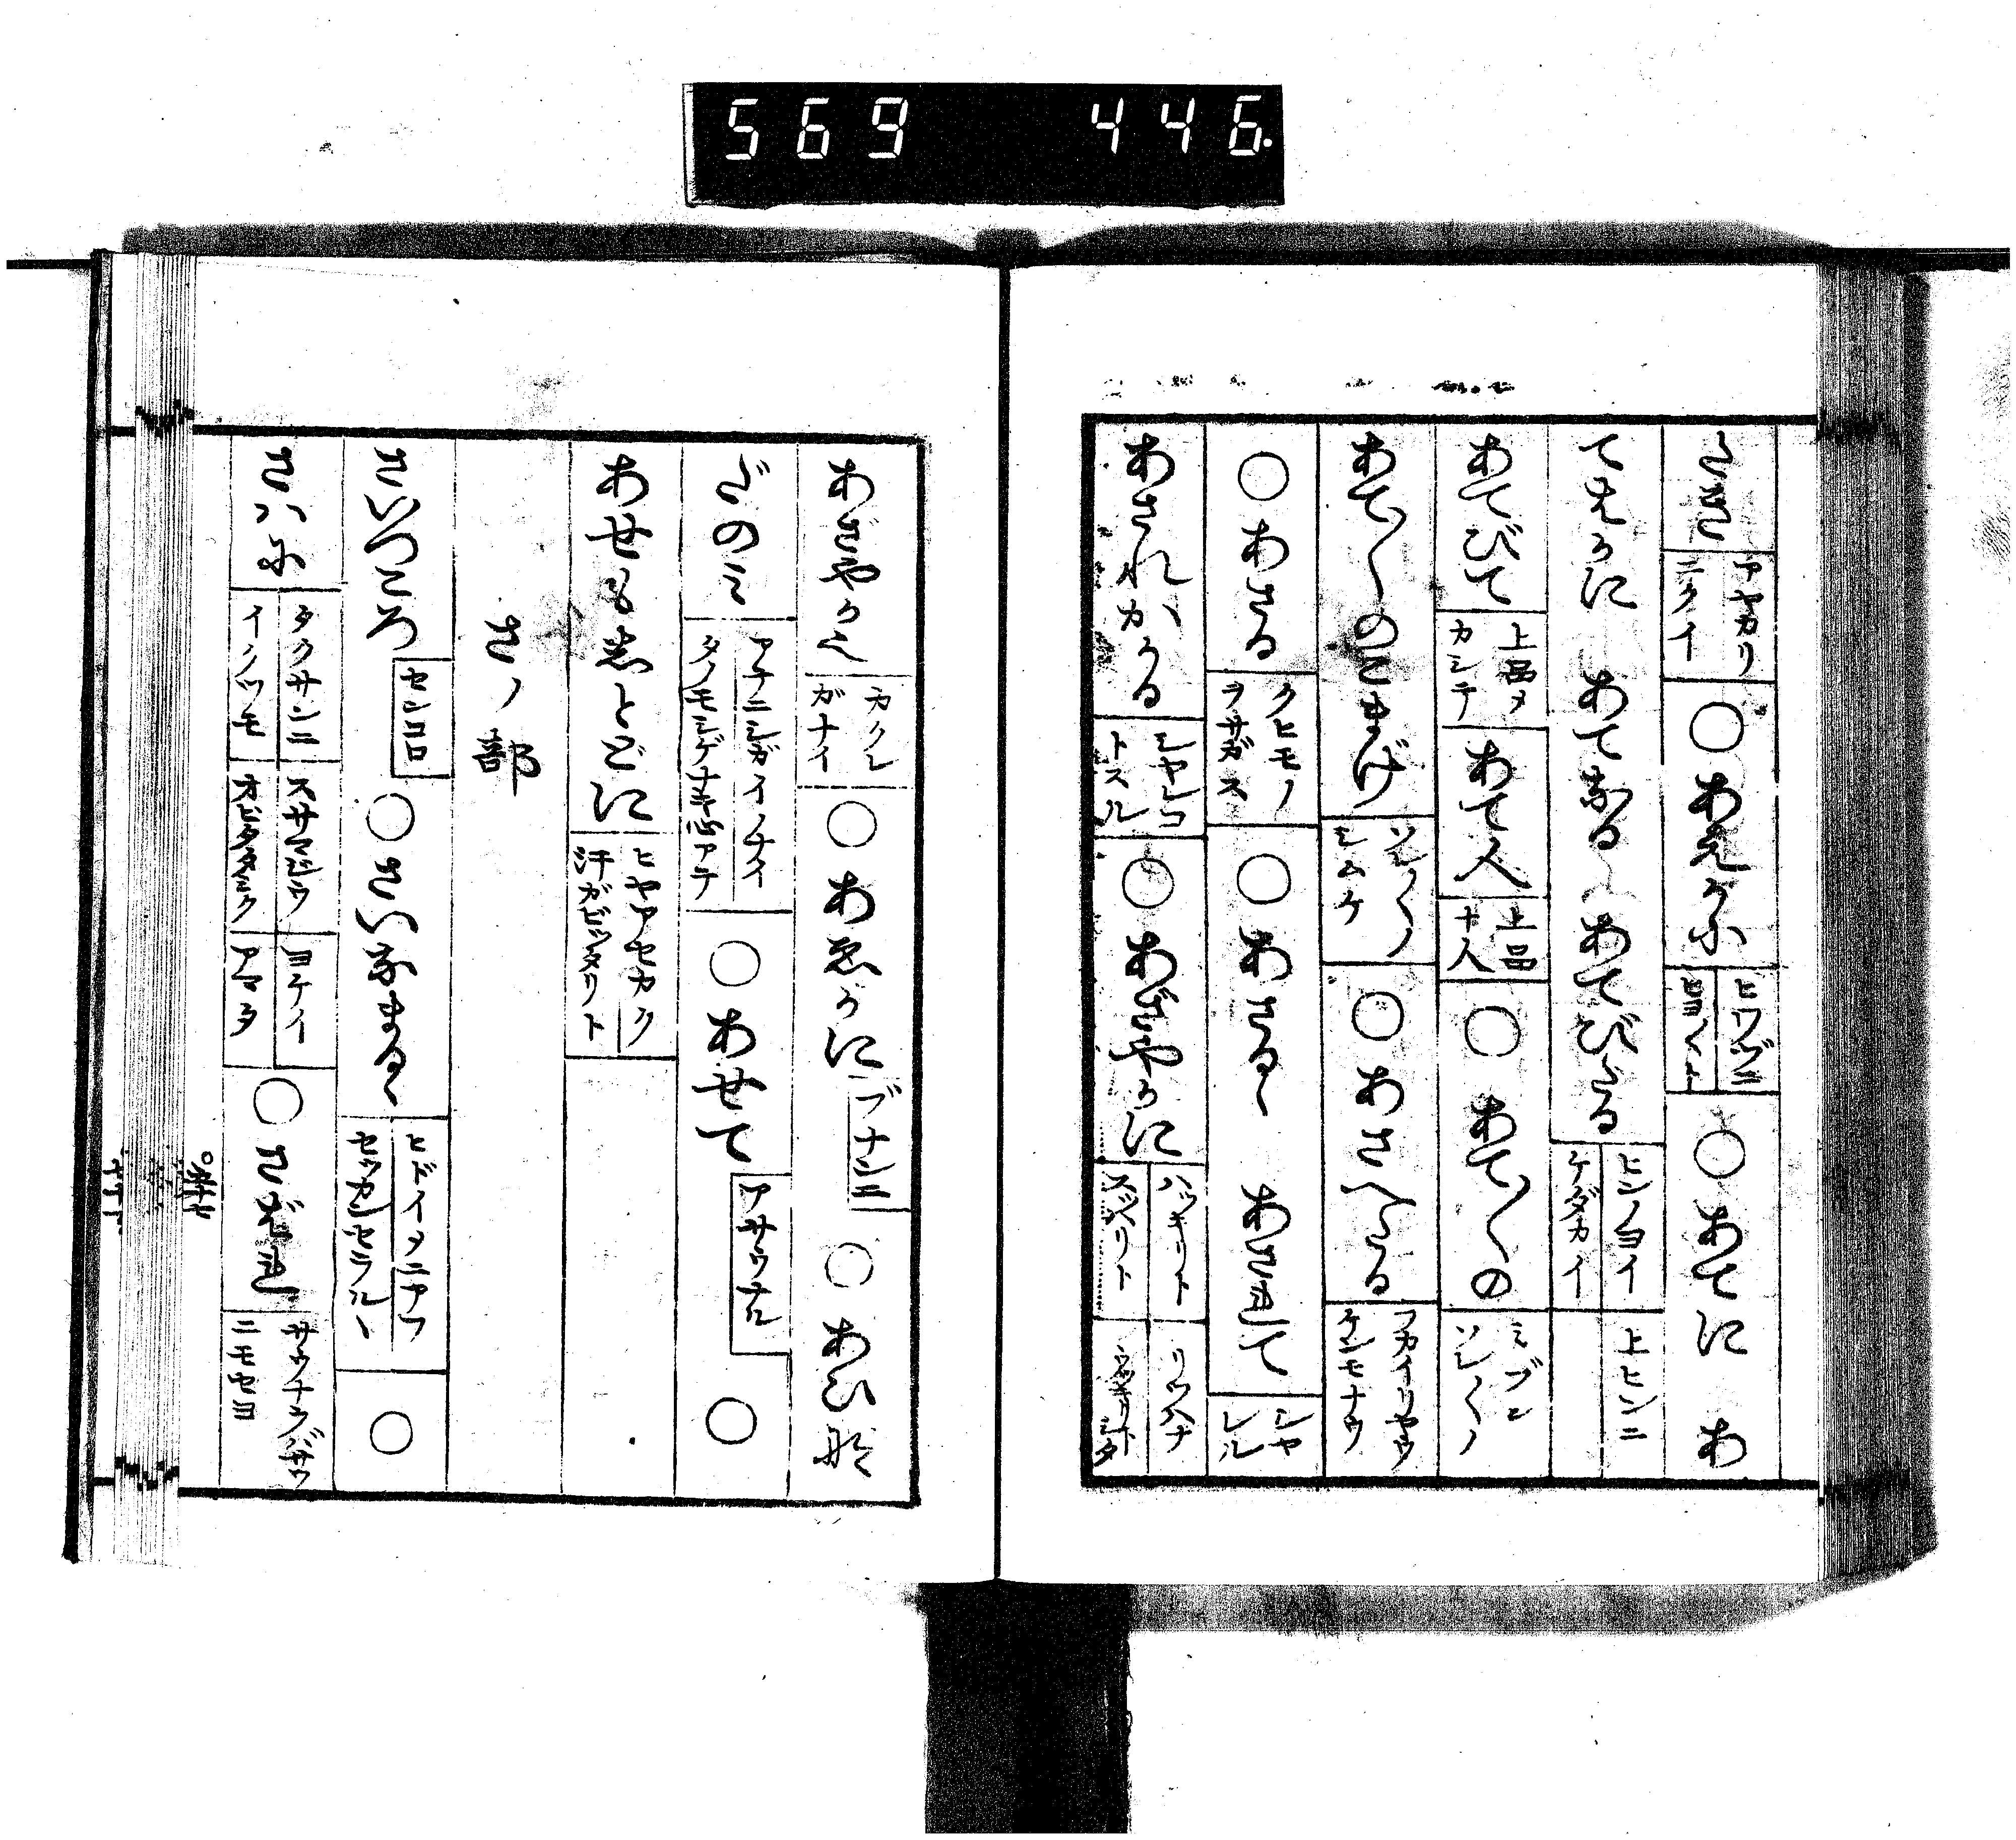 569 446.
アヤカリ
ニクイ
○あえかに
○あてに あ
てはかに あてなる あてびたる
ヒンノヨイ
ケダカイ
上ヒンニ
あてびて
上品メ
カシテ
あて人
上品
ナ人
○あて〱の
ミブン
ソレ〱ノ
あて〱のこまげ
ソレ〱ノ
シムケ
○あさへたる
フカイリヤウ
ケンモナウ
○あさる
クヒモノ
ヲサガス
○あさるゝ あされて
シヤ
レル
あされかゝる
シヤレコ
トスル
○あざやかに
ハッキリト
スッパリト
リッパナ
あぎやかに
カクレ
ガナイ
○あゑかに
ブナンニ
○あひ形
どのミ
アチニシガイノナイ
○あせて
アサウナル
○
あせもしとどに
ヒヤアセカク
汗ガビッタリト
さノ部
さいつころ
センコロ
○さいなまるゝ
ヒドイメニアフ
セッカンセラルヽ
○
さハに
タクサンニ
イクツモ
スサマジウ
オビタダシク
ヨケイ
アマタ
○さばれ
サウナラバサウ
ニモセヨ